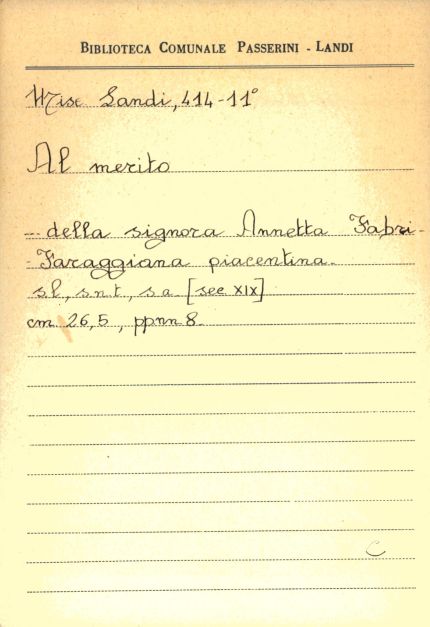 BIBLIOTECA COMUNALE PASSERINI - LANDI
Misc Landi, 414-11°
Al merito
-- della signora Annetta Fabri-
-Faraggiana piacentina.
s.l., s.n.t., s.a. [sec XIX]
cm 26,5, ppnn 8.
C